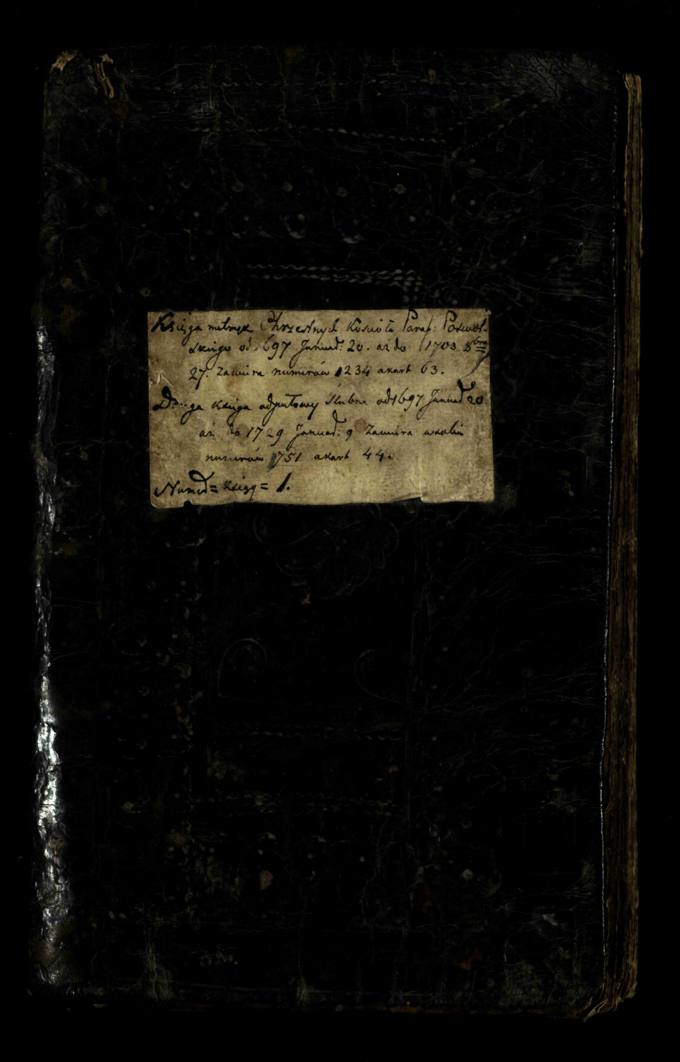 Księga metryk Chrzestnych Kościoła Paraf: Poswol-
skiego od 1697 Januar: 20. aż do 1703 8bris
27. zawiera numerów 1234 a kart 63.
Druga księga odpustowy ślubna od 1697 Januar 20
aż do 1729 Januar: 9 zawiera w sobie
numerów 751 a kart 44.
Numer = księg = 1.